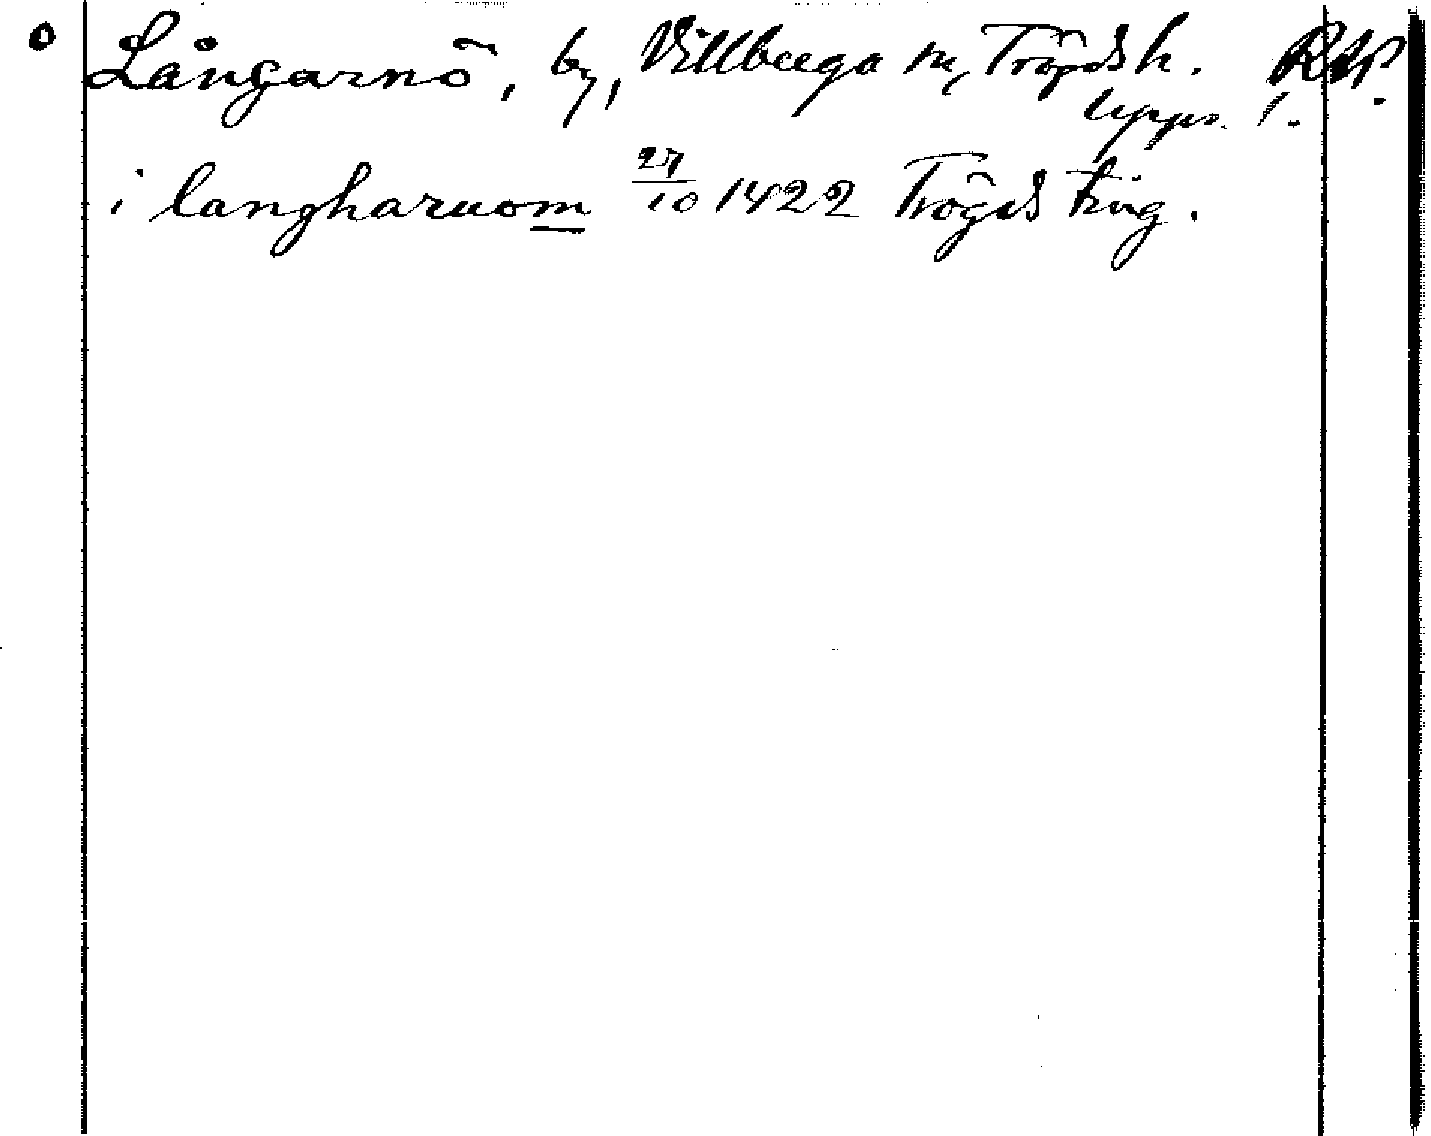 Långarnö, by, Villberga sn, Trögds h.
Upps. l.
i langharuom 27/10 1422 Trögds ting.